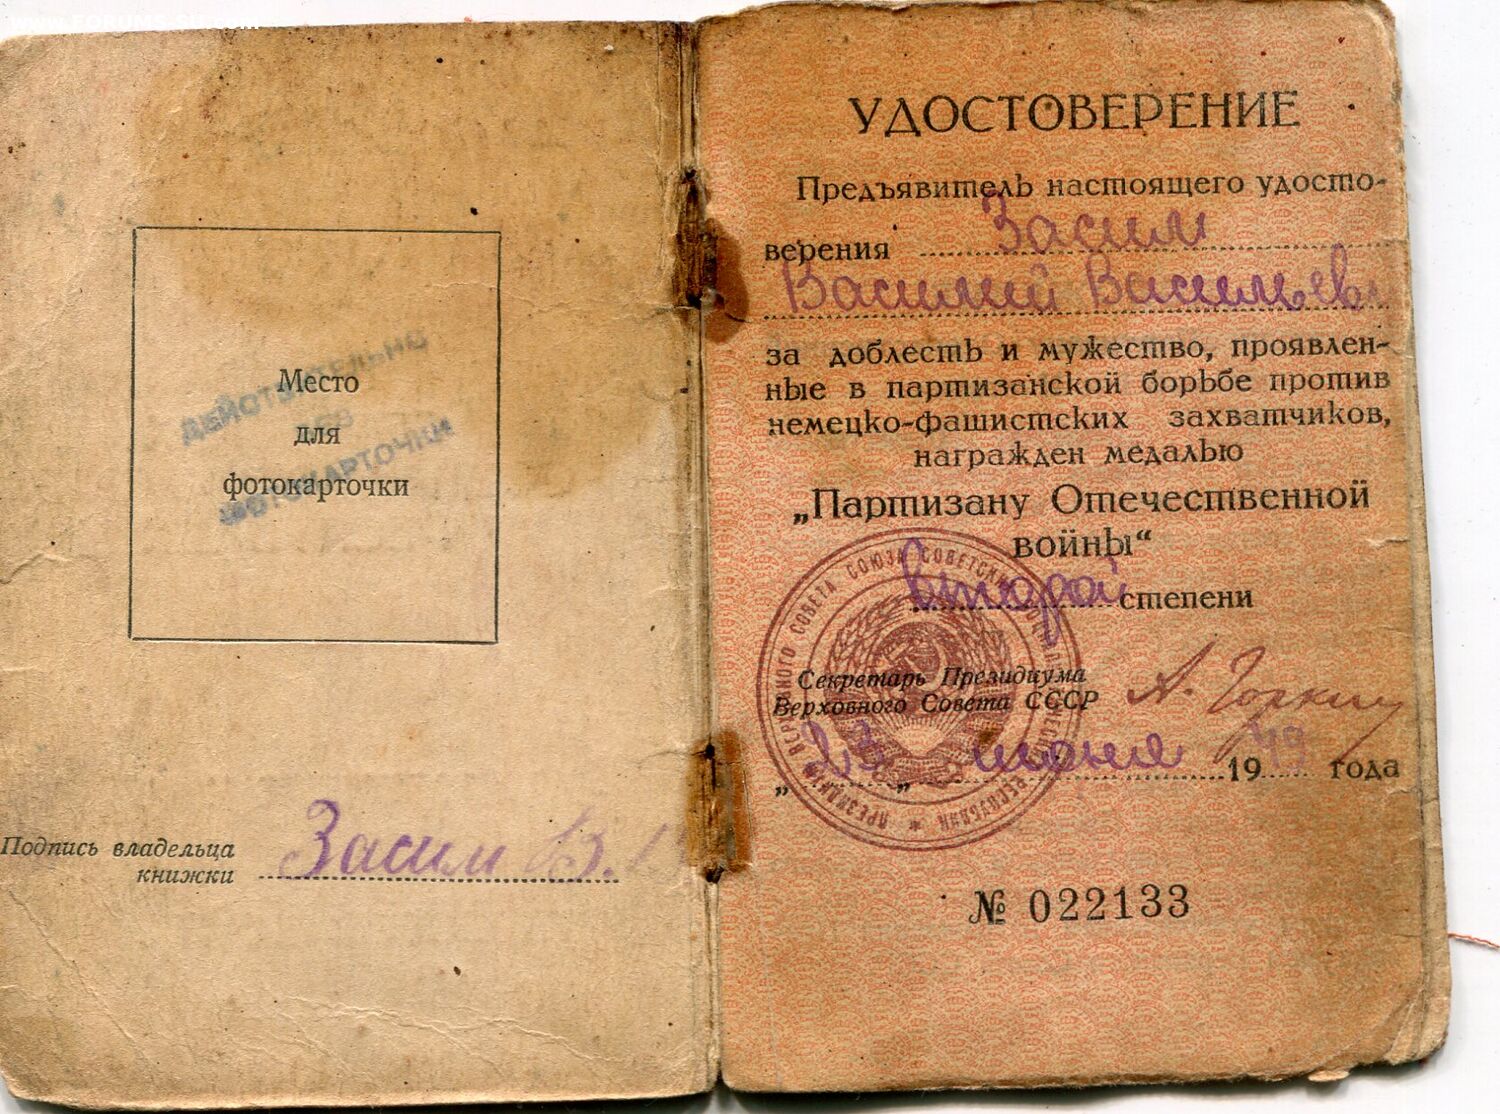 www.FORUMS.SU.com
Место
для
фотокарточки
ДЕЙСТВИТЕЛЬНО
БЕЗ
ФОТОКАРТОЧКИ
Подпись владельца
книжки Засим В.
УДОСТОВЕРЕНИЕ
Предъявитель настоящего удосто-
верения Засим
Василий Васильев
за доблесть и мужество, проявлен-
ные в партизанской борьбе против
немецко-фашистских захватчиков,
награжден медалью
„Партизану Отечественной
войны“
второй степени
Секретарь Президиума
Верховного Совета СССР А. Горкин
„23„ июня 1949 года
ПРЕЗИДИУМ ВЕРХОВНОГО СОВЕТА СОЮЗА СОВЕТСКИХ СОЦИАЛИСТИЧЕСКИХ РЕСПУБЛИК *
№ 022133